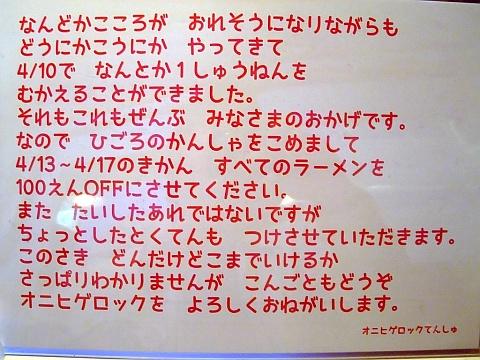 なんどかこころが　おれそうになりながらも
どうにかこうにか　やってきて
4/10で　なんとか1しゅうねんを
むかえることができました。
それもこれもぜんぶ　みなさまのおかげです。
なので　ひごろのかんしゃをこめまして
4/13～4/17のきかん　すべてのラーメンを
100えんOFFにさせてください。
また　たいしたあれではないですが
ちょっとしたとくてんも　つけさせていただきます。
このさき　どんだけどこまでいけるか
さっぱりわかりませんが　こんごともどうぞ
オニヒゲロックを　よろしくおねがいします。
オニヒゲロックてんしゅ